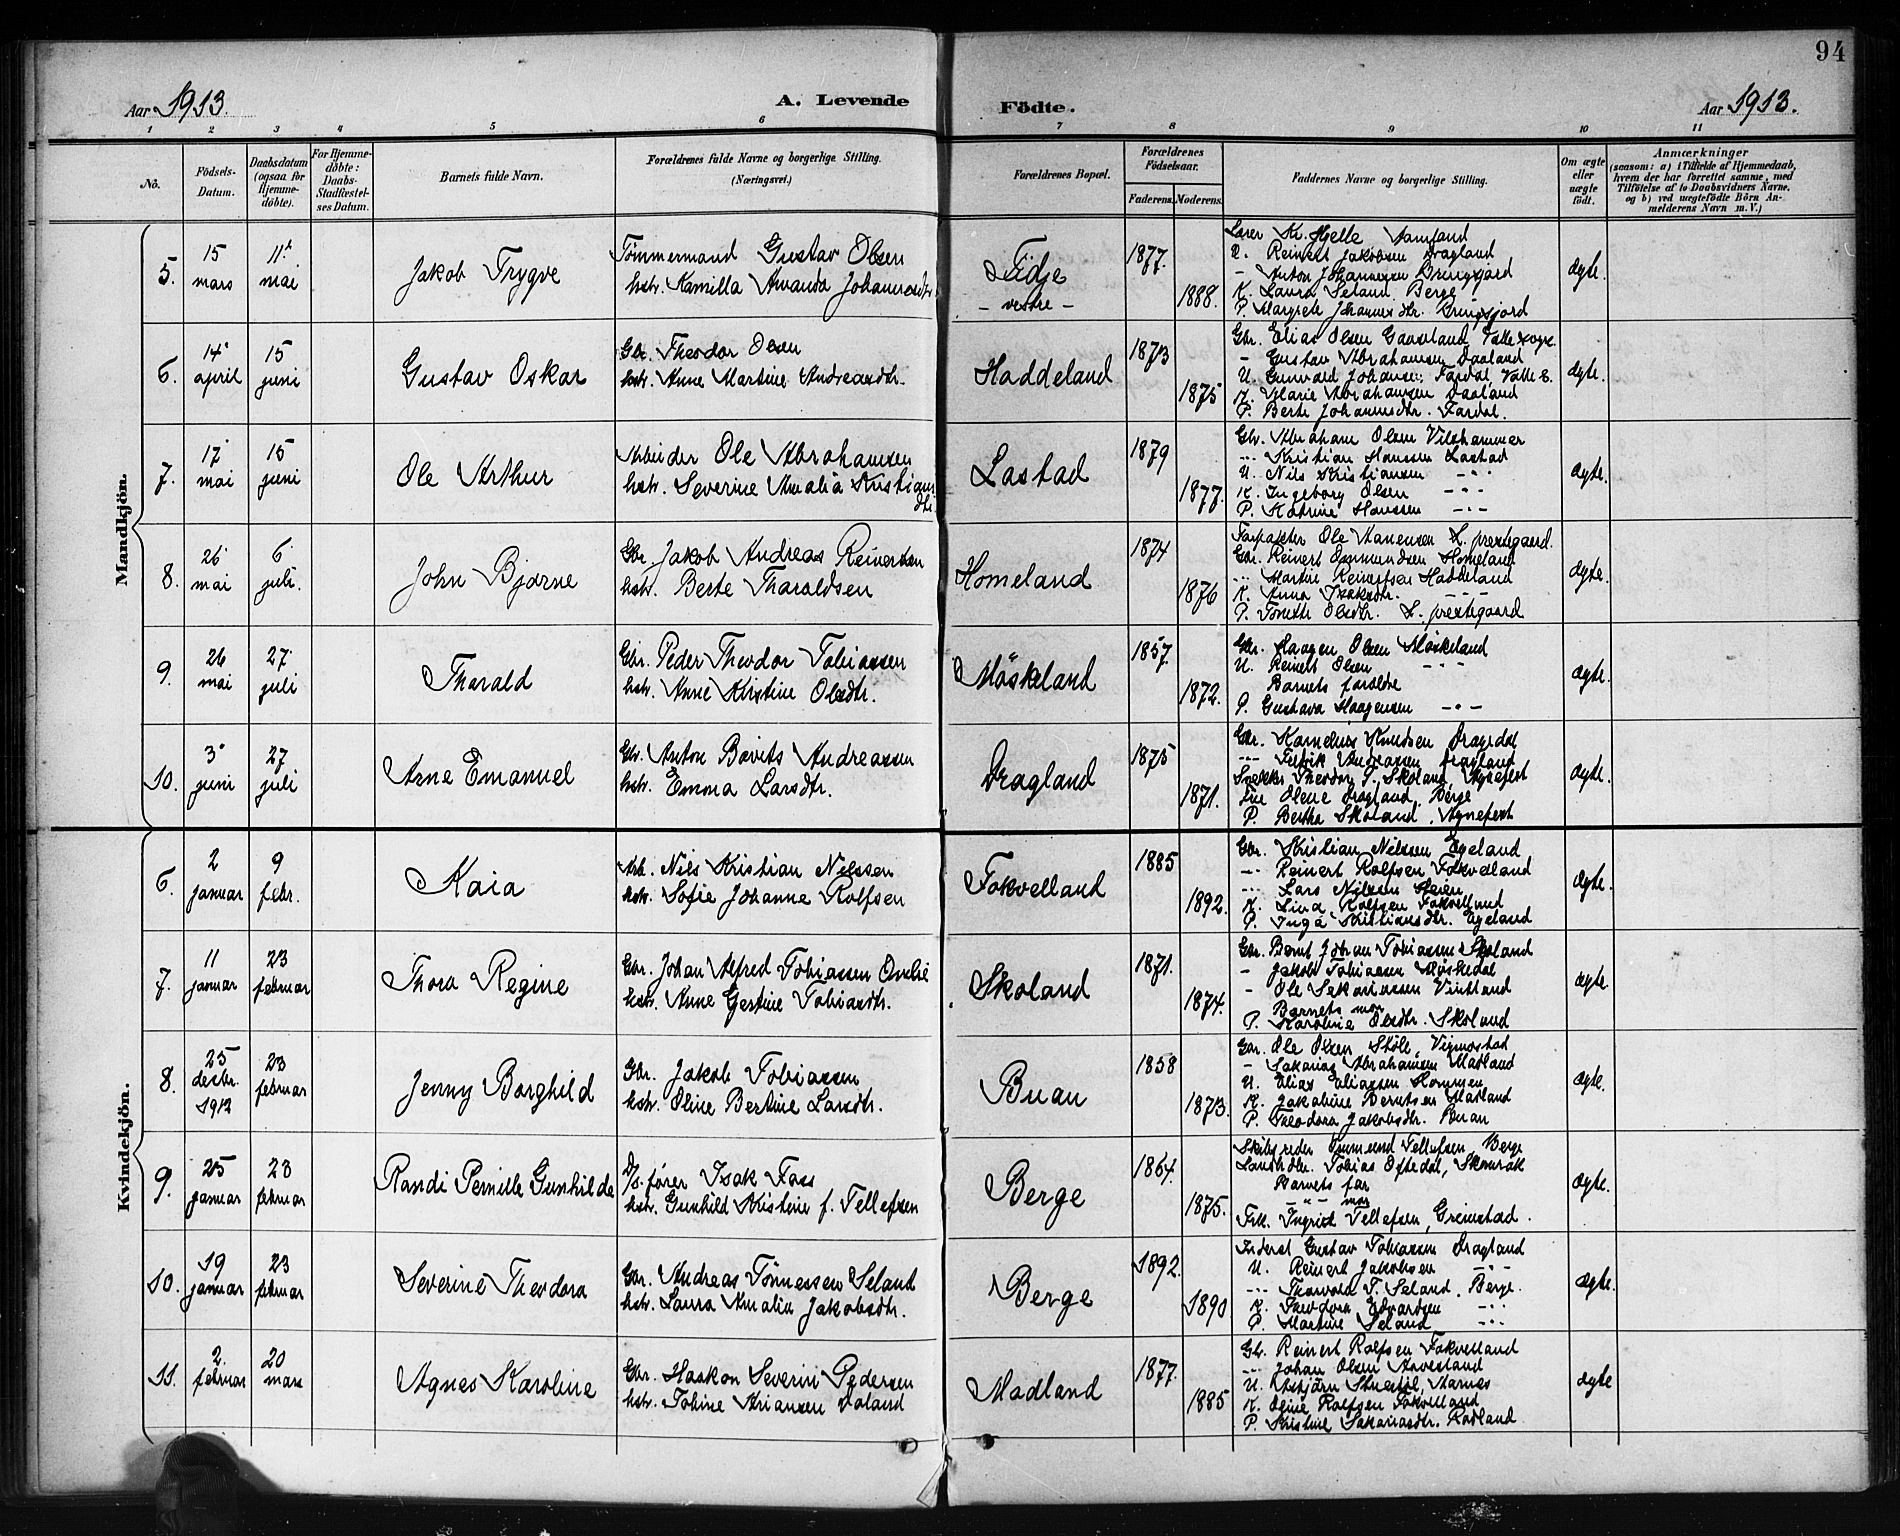 94
Aar 1913.
A. Levende Födte.
Aar 1913.
1 2 3 4 5 6 7 8 9 10 11
No.
Födsels-Datum.
Daabsdatum (ogsaa for Hjemme-döbte).
For Hjemme-döbte: Daabs-Stadfestel-ses Datum.
Barnets fulde Navn.
Forældrenes fulde Navne og borgerlige Stilling. (Næringsvei.)
Forældrenes Bopæl.
Forældrenes Födselsaar.
Faderens. Moderens.
Faddernes Navne og borgerlige Stilling.
Om ægte eller uægte födt.
Anmærkninger
(saasom: a) i Tilfælde af Hjemmedaab, hvem der har forrettet samme, med Tilföielse af to Daabsvidners Navne, og b) ved uægtefödte Börn An-melderens Navn m. V.)
Mandkjön.
5. 15 mars 11te mai Jakob Trygve
Tömmermand Gustav Olsen
hstr. Kamilla Amanda Johannesdtr.
Fidje - vestre - 1877. 1888.
Lærer Kr. Hjelle
U. Reinert Jakobsen Dragland
- Anton Johannesen Bringsjord
K. Laura Seland Berge
P. Margrete Johannesdtr. Bringsjord
ægte.
6. 14 april 15 juni Gustav Oskar
Gbr. Theodor Olsen
hstr. Anne Martine Andreasdtr.
Haddeland 1873 1875
Gbr. Elias Olsen Gaaseland Valle sogn.
- Gustav Abrahamsen Daaland
U. Gunvald Johansen Fardal, Valle s.
K. Marie Abrahamsen Daaland
P. Berte Johannesdtr. Fardal.
ægte.
7. 17 mai 15 juni Ole Arthur
Arbeider Ole Abrahamsen
hstr. Severine Amalia Kristians dtr.
Lastad 1879 1877.
Gbr. Abraham Olsen
-"- Kristian Hansen Lastad
U. Nils Kristiansen -"-
K. Ingeborg Olsen -"-
P. Katrine Hanssen -"-
ægte.
8. 26 mai 6 juli. John Bjarne
Gbr Jakob Andreas Reinertsen
hstr. Berte Tharaldsen
Homeland 1874 1876
Forpakter Ole Hanensen L. prestegaard.
Gbr. Reinert Osmundsen Homeland
-"- Martin Reinertsen Haddeland
K. Anna Isaksdtr. -"-
P. Tonette Olsdtr. L. prestegaard
ægte.
9. 26 mai 27 juli Tharald
Gbr. Peder Theodor Tobiassen
hstr. Anne Kristine Olsdtr.
Möskeland 1857. 1872.
Gbr. Haagen Olsen Möskeland
U. Reinert Olsen -"-
Barnets forældre
P. Gustava Haagensen -"-
ægte.
10. 3 juni 27 juli Arne Emanuel
Gbr. Anton Bovits Andreassen
hstr. Emma Larsdtr.
Dragland 1875 1871.
Gbr. Kornelius Knudsen Dragedal
-"- Fredrik Andreassen Dragland
Snekker Theodor T. Skoland Agnefest
Frue Olene Dragland. Berge
P. Bertha Skoland, Agnefest
ægte.
Kvindekjön.
6. 2 januar 9 febr. Kaia
Arb. Nils Kristian Nilssen
hstr. Sofie Johanne Rolfsen
Fokvelland 1885 1892.
Gbr. Kristian Nilssen Egeland
-"- Reinert Rolfsen Fokvelland
-"- Lars Nilssen Steien
K. Lina Rolfsen Fokvelland
P. Inga Kristiansdtr. Egeland
ægte.
7. 11 januar 23 februar Thora Regine
Gbr. Johan Alfred Tobiassen Ovelie
hstr. Anne Gertine Tobiasdtr.
Skoland 1871. 1874.
Gbr. Bernt Johan Tobiassen Skoland
- Jakob Tobiassen Möskedal
- Ole Sakariassen Vintland
Barnets mor
P. Karoline Olsdtr. Skoland
ægte
8. 25 decbr. 1912 23 februar Jenny Borghild
Gbr. Jakob Tobiassen
hstr. Oline Bertine Larsdtr.
Buan 1858 1873.
Gbr. Ole Olsen Stöle, Vigmostad
- Sakarias Abrahamsen Madland
U. Elias Eliassen Hommen
K. Jakobine Berntsen Madland
P. Theodora Jakobsdtr. Buan
ægte.
9. 25 januar 23 februar Randi Pernille Gunhilde
D/s. förer Isak Foss
hstr. Gunhild Kristine f. Tellefsen
Berge 1864. 1875.
Skibsreder Ommund Tellefsen Berge
Landhdlr. Tobias Oftedal, Skomrak
Barnets far
-"- mor
Frk. Ingrid Tellefsen, Grimstad.
ægte.
10. 19 januar 23 februar Severine Theodora
Gbr. Andreas Tönnessen Seland
hstr. Laura Amalia Jakobsdtr.
Berge 1892. 1890
Inderst Gustav Tobiassen Dragland
U. Reinert Jakobsen -"-
-"- Thorvald T. Seland. Berge.
K. Theodora Edvardsen -"-
P. Martine Seland -"-
ægte.
11. 2. februar 20 mars Agnes Karoline
Gbr. Haakon Severin Pedersen
hstr. Tobine Ariansen Voland
Madland 1877. 1885
Gb. Reinert Rolfsen Fokvelland
-"- Johan Olsen Aavesland
U. Asbjörn
K. Oline Rolfsen Fokvelland
P. Kristine Sakariasdtr. Rodland
ægte